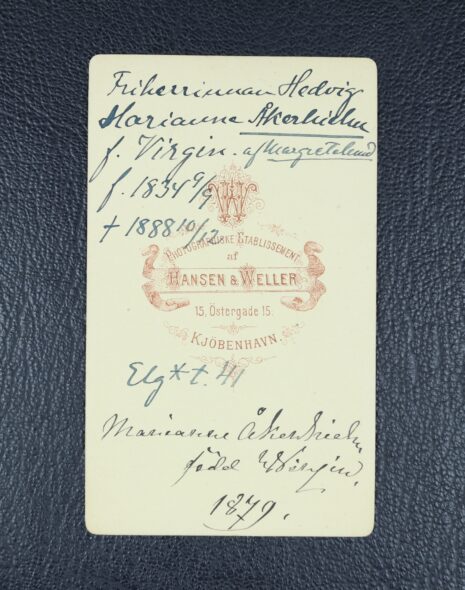 Friherrinnan Hedvig
Marianne Åkerhielm
f. Virgin. af Margretelund
f. 1834 9/9
† 1888 10/12
HW
PHOTOGRAPHISKE ETABLISSEMENT
af
HANSEN & WELLER
15. Östergade 15.
KJÖBENHAVN.
Elg* t. 41
Marianne Åkerhielm
född Virgin.
1879.